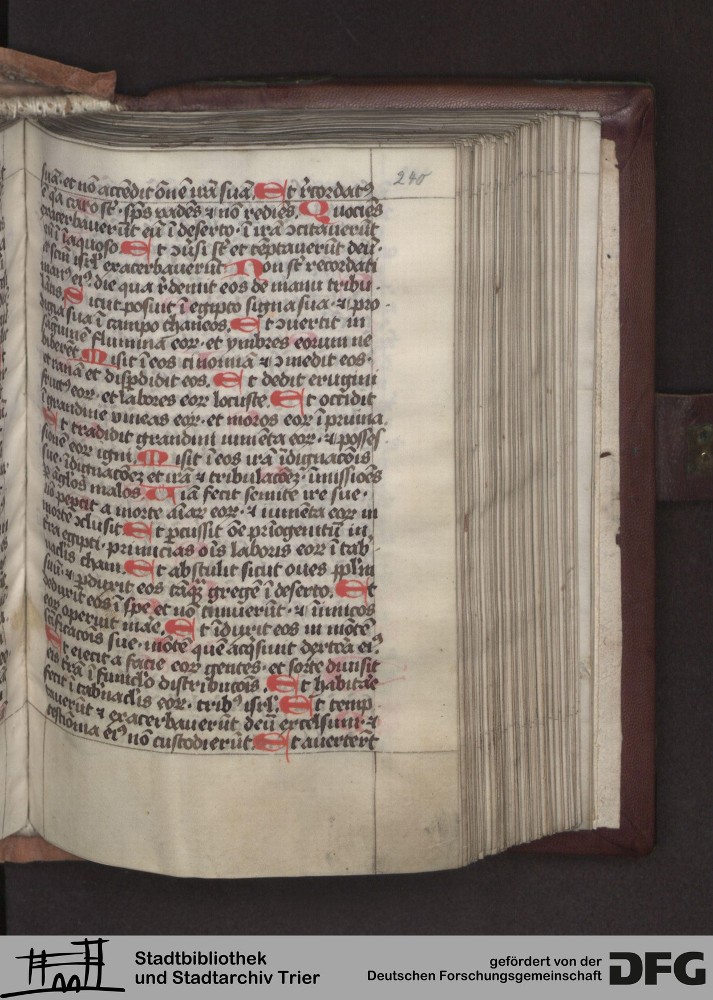 240
suā· et nō accēdit ōnē irā suā. Et r̄cordatꝰ
ē qa caro sūt· sp̄s vadēs ⁊ nō rediēs. Quociēs
exacerbaverūt eū ī deserto· ī irā ↄcitaverūt
eū ī laquoso. Et ↄūsi sūt et tēptaverūt deū·
et sc̄m isrl̄ exacerbaverūt. Non sūt recordati
manꝰ eiꝰ· die qua r̄demit eos de manu tribu-
lātis. Sicut posuit ī egipto signa sua· ⁊ pro-
digia sua ī campo thaneos. Et ↄvertit in
sāguinē flumina eoꝝ· et ymbres eorum ne
biberēt. Misit ī eos cinomiā ⁊ ↄmedit eos·
et ranā et disp̄didit eos. Et dedit erugini
fructꝰ eoꝝ· et labores eoꝝ locuste. Et occidit
ī grandine vineas eoꝝ· et moros eoꝝ ī pruina
Et tradidit grandini iumēta eoꝝ· ⁊ posses-
sionē eoꝝ igni. Misit ī eos irā īdignacōis
sue· īdignacōeȝ et irā ⁊ tribulacōeȝ· īmissiōes
ꝑ āgl̄os malos. Viā fecit semite ire sue·
nō peꝑcit a morte aīaꝝ eoꝝ· ⁊ iumēta eoꝝ in
morte ↄclusit. Et ꝑcussit ōe prīogenitū in
t̄ra egipti· primicias oīs laboris eoꝝ ī tab-
n̄aclis cham. Et abstulit sicut oves pp̄lm
suū· ⁊ ꝑduxit eos tāqȝ gregē ī deserto. Et
deduxit eos ī spe et nō timuerūt· ⁊ īimicos
eoꝝ operuit mare. Et īduxit eos in mōtē
sc̄ificacōis sue· mōtē quē acq̄sivit dextera eiꝰ
Et eiecit a facie eoꝝ gentes· et sorte divisit
eis t̄rā ī funicl̄o distribucōis. Et habitare
fecit ī tabn̄aclis eoꝝ· tribꝰ isrl̄. Et temp-
taverūt ⁊ exacerbaverūt deū excelsum· ⁊
testīonia eiꝰ nō custodierūt. Et avertert̄
Stadtbibliothek
und Stadtarchiv Trier
gefördert von der
Deutschen Forschungsgemeinschaft
DFG